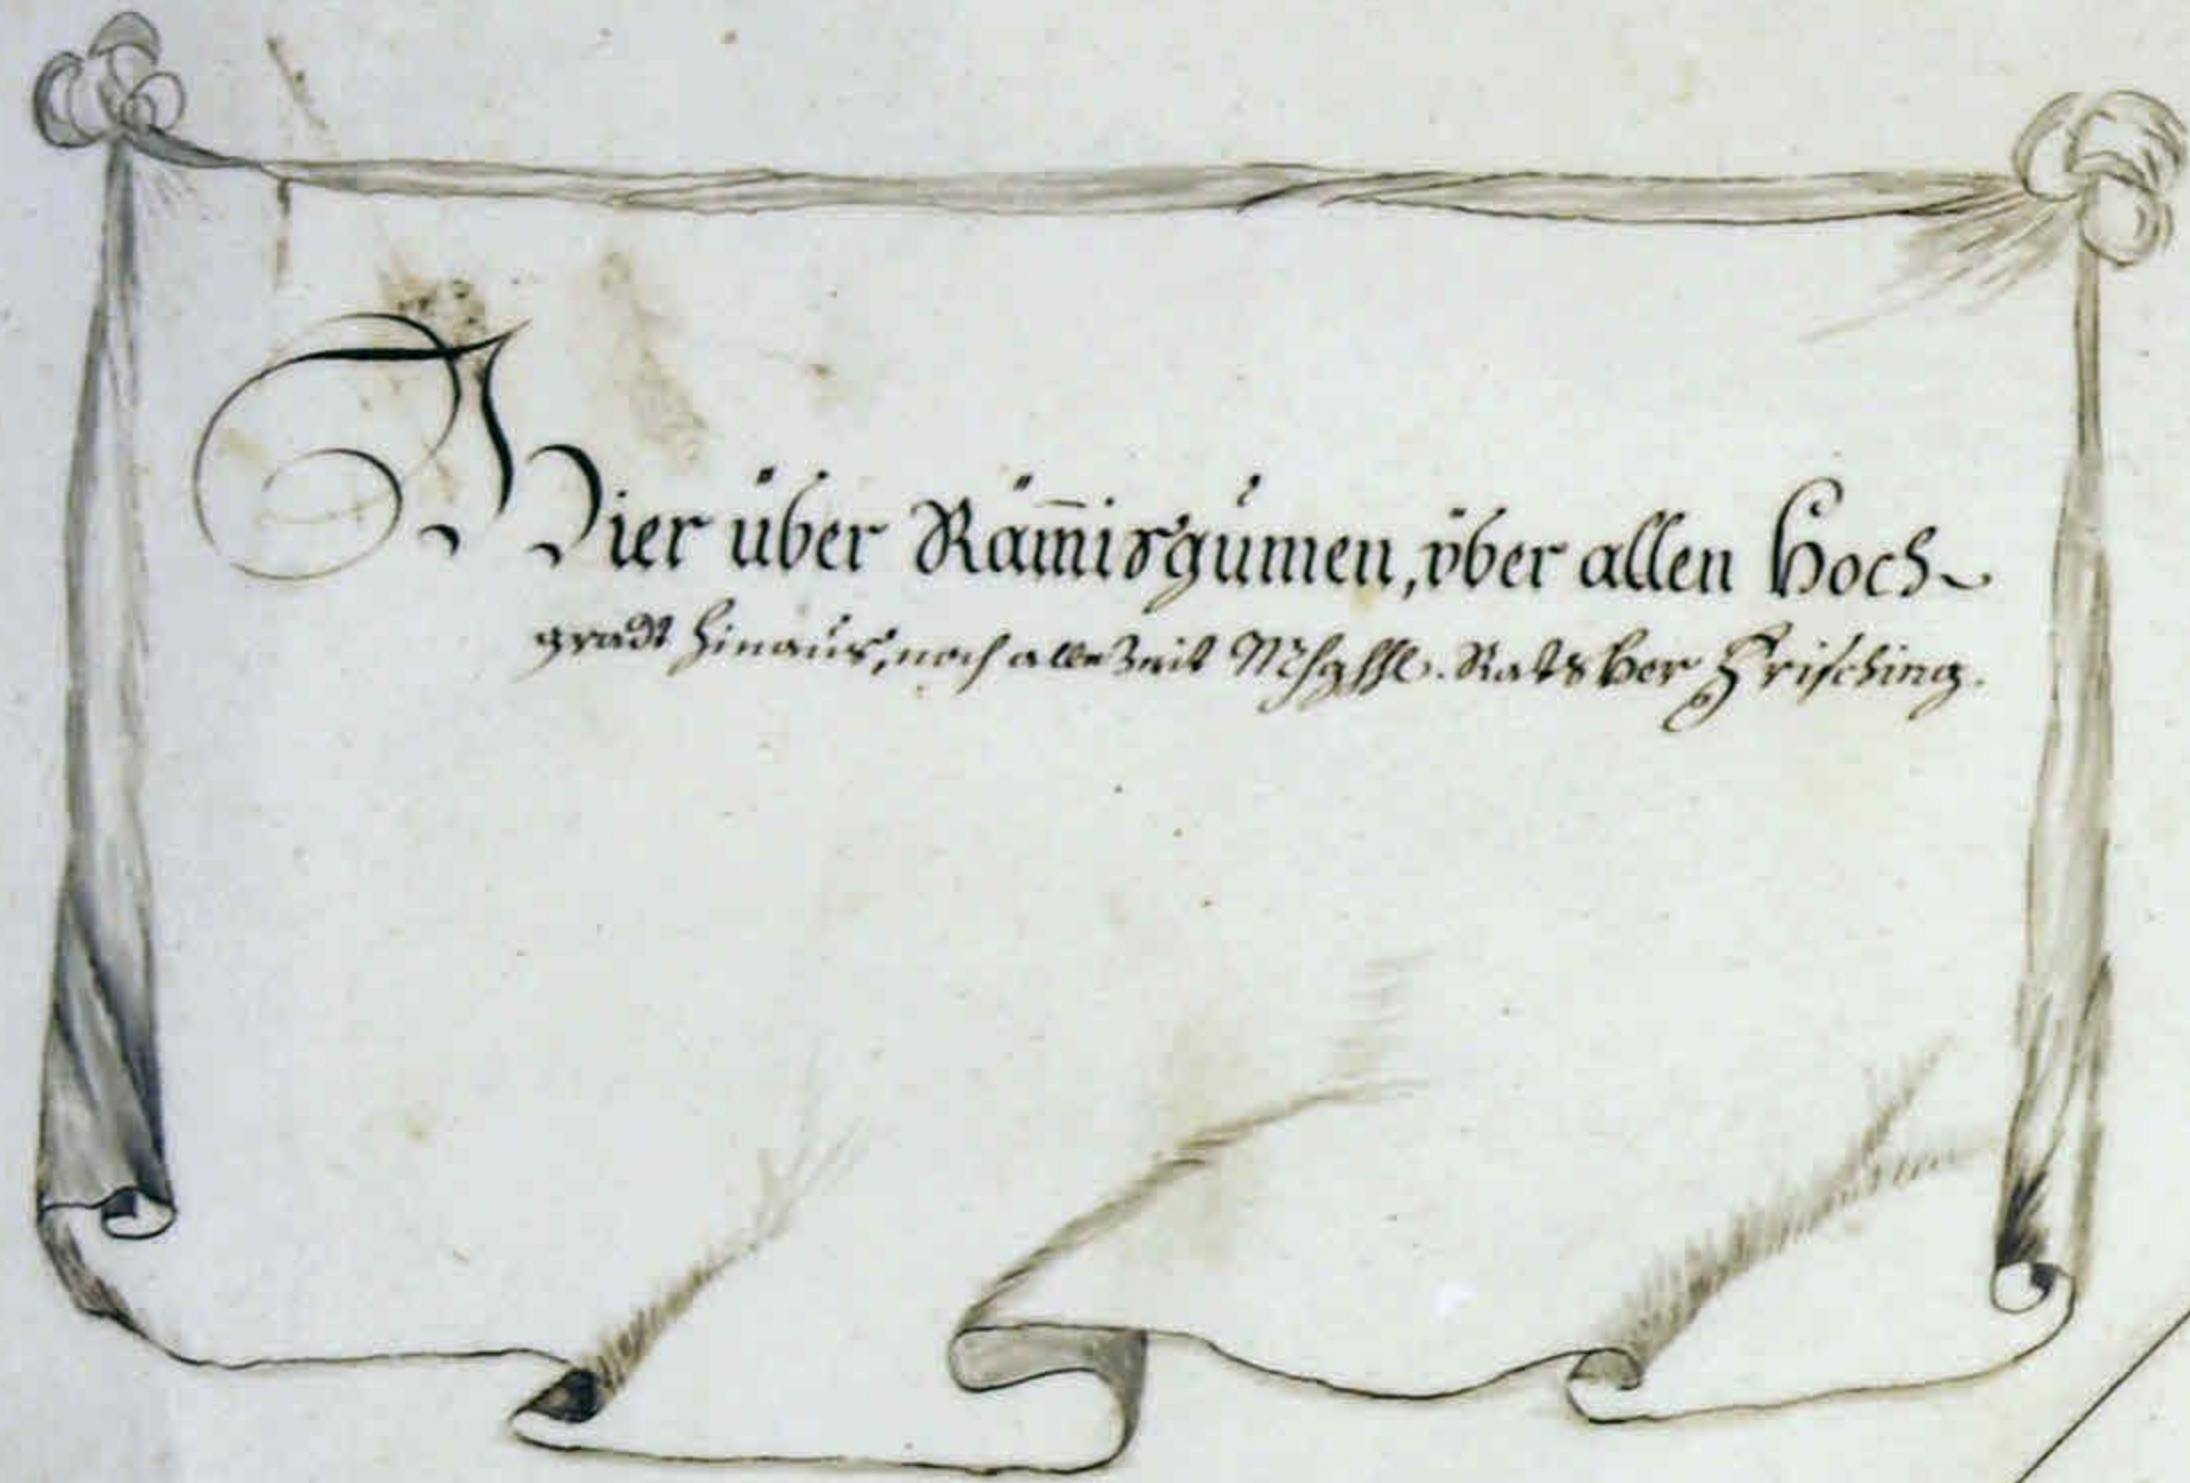 Hier über Räm̅isgŭmen, über allen Hoch-
gradt hinaŭs, noch alle Zeit MhgHl. Ratsher Frisching.